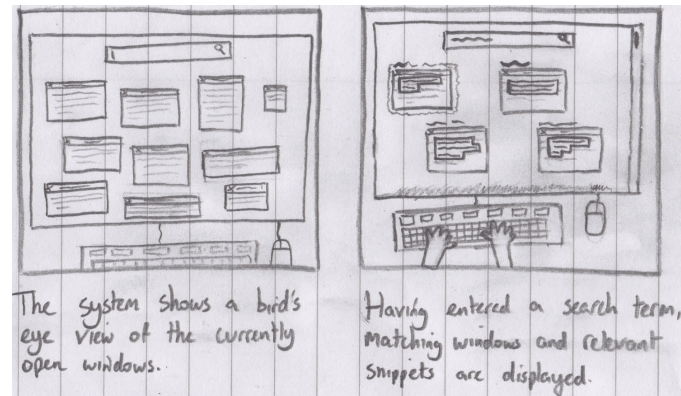 The system shows a bird's
eye view of the currently
open windows.
Having entered a search term,
Matching windows and relevant
snippets are displayed.